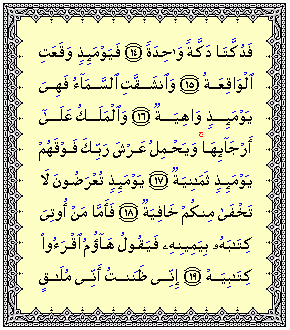 فَدُكَّتَا دَكَّةً وَٰحِدَةً ١٤ فَيَوْمَئِذٍ وَقَعَتِ
ٱلْوَاقِعَةُ ١٥ وَٱنشَقَّتِ ٱلسَّمَآءُ فَهِىَ
يَوْمَئِذٍ وَاهِيَةٌ ١٦ وَٱلْمَلَكُ عَلَىٰٓ
أَرْجَآئِهَا ۚ وَيَحْمِلُ عَرْشَ رَبِّكَ فَوْقَهُمْ
يَوْمَئِذٍ ثَمَٰنِيَةٌ ١٧ يَوْمَئِذٍ تُعْرَضُونَ لَا
تَخْفَىٰ مِنكُمْ خَافِيَةٌ ١٨ فَأَمَّا مَنْ أُوتِىَ
كِتَٰبَهُۥ بِيَمِينِهِۦ فَيَقُولُ هَآؤُمُ ٱقْرَءُوا۟
كِتَٰبِيَهْ ١٩ إِنِّى ظَنَنتُ أَنِّى مُلَٰقٍ